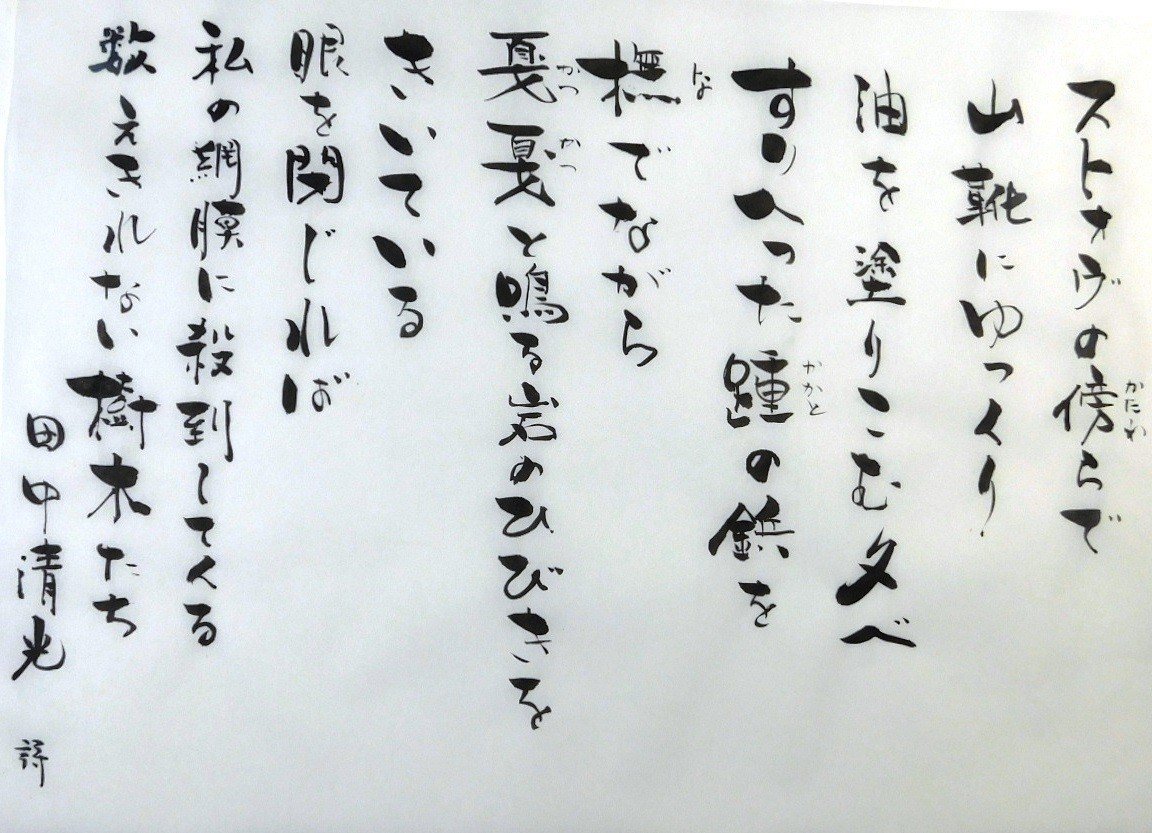 ストォヴの傍らで
かたわ
山靴にゆっくり
油を塗りこむ夕べ
すりへった踵の鋲を
かかと
撫でながら
な
戛戛と鳴る岩のひびきを
かつかつ
きいている
眼を閉じれば
私の網膜に殺到してくる
数えきれない樹木たち
田中清光 詩